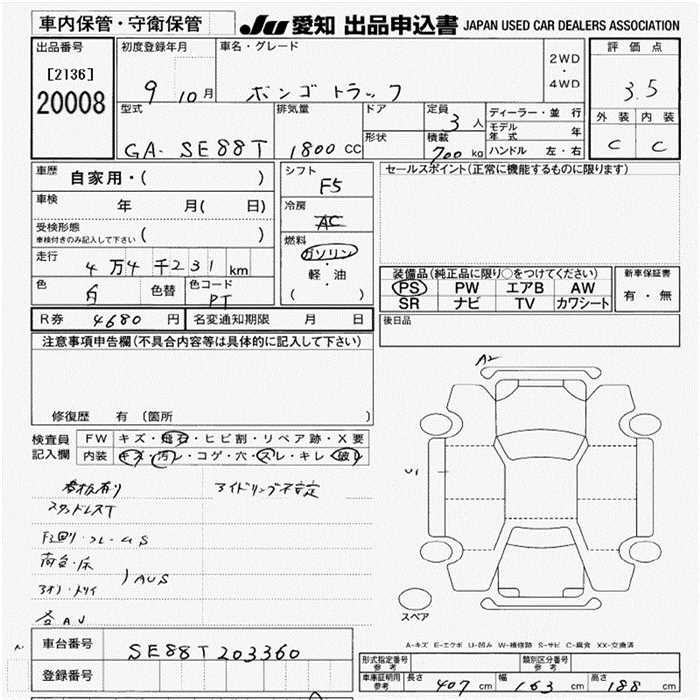 車内保管・守衛保管
JU 愛知 出品申込書 JAPAN USED CAR DEALERS ASSOCIATION
出品番号
[2136]
20008
初度登録年月
9 10月
車名・グレード
ボンゴトラック
2WD
・
4WD
評価点
3.5
外装 内装
C C
型式
GA-SE88T
排気量
1800 CC
ドア
形状
定員
3人
積載
700 kg
ディーラー・並行
モデル年式 年
ハンドル 左・右
車歴 自家用・( )
車検 年 月( 日)
受検形態
車検付きのみ記入して下さい ( )
走行
4万4千231 km
色
白
色替
色コード
PT
シフト
F5
冷房
AC
燃料
ガソリン
・
軽・油
( )
セールスポイント(正常に機能するものに限ります)
装備品(純正品に限り○をつけてください)
PS PW エアB AW
SR ナビ TV カワシート
新車保証書
有・無
R券 4680 円
名変通知期限 月 日
後日品
注意事項申告欄(不具合内容等は具体的に記入して下さい)
修復歴 有 (箇所 )
検査員
記入欄
FW キズ・飛石・ヒビ割・リペア跡・X要
内装 キズ・汚レ・コゲ・穴・スレ・キレ・破レ
看板有り
アイドリング不安定
スタッドレスT
下回り・フレームS
荷台・床
アオリ・トリイ
)AUS
各AU
A2
U1
スペア
A-キズ E-エクボ U-凹み W-補修跡 S-サビ C-腐食 XX-交換済
車台番号
SE88T203360
登録番号
形式指定番号
参考
類別区分番号
参考
車庫証明用
参考
長さ 407 cm
幅 163 cm
高さ 188 cm